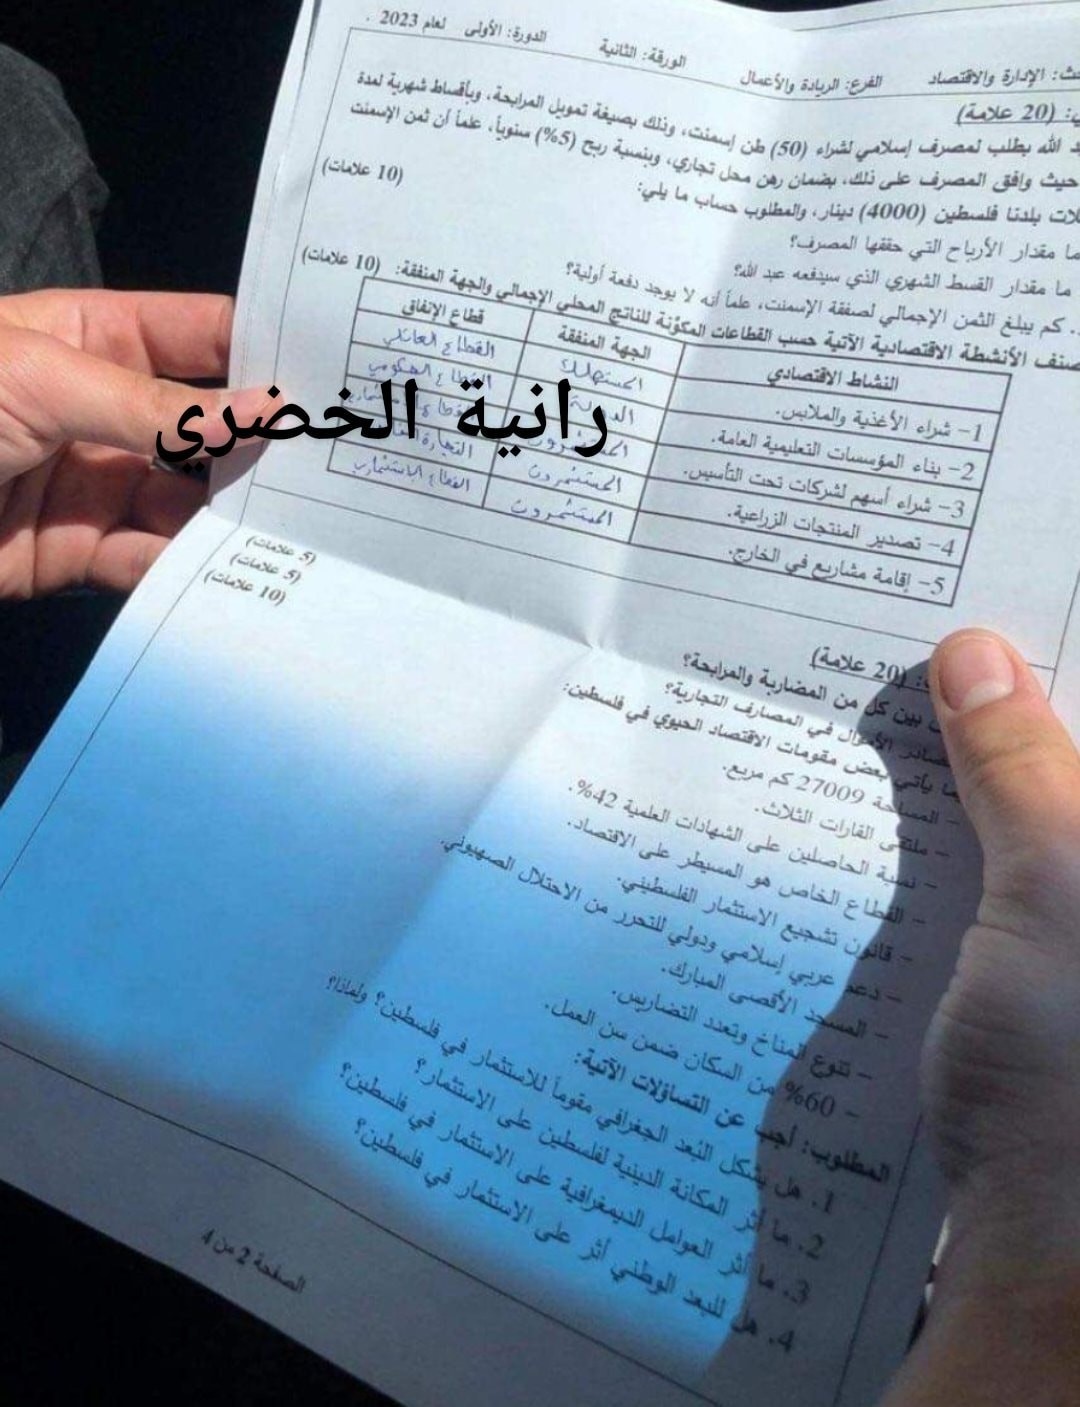 حث: الإدارة والاقتصاد الفرع: الريادة والأعمال الورقة: الثانية الدورة: الأولى لعام 2023 .
ي: (20 علامة)
د الله بطلب لمصرف إسلامي لشراء (50) طن إسمنت، وذلك بصيغة تمويل المرابحة، وبأقساط شهرية لمدة
حيث وافق المصرف على ذلك، بضمان رهن محل تجاري، وبنسبة ربح (5%) سنوياً، علماً أن ثمن الإسمنت
لات بلدنا فلسطين (4000) دينار، والمطلوب حساب ما يلي: (10 علامات)
ما مقدار الأرباح التي حققها المصرف؟
ما مقدار القسط الشهري الذي سيدفعه عبد الله؟
. كم يبلغ الثمن الإجمالي لصفقة الإسمنت، علماً أنه لا يوجد دفعة أولية؟
صنف الأنشطة الاقتصادية الآتية حسب القطاعات المكوّنة للناتج المحلي الإجمالي والجهة المنفقة: (10 علامات)
النشاط الاقتصادي الجهة المنفقة قطاع الإنفاق
1- شراء الأغذية والملابس. المستهلك القطاع العائلي
2- بناء المؤسسات التعليمية العامة. الدولة القطاع الحكومي
3- شراء أسهم لشركات تحت التأسيس.
4- تصدير المنتجات الزراعية. المستثمرون التجارة
5- إقامة مشاريع في الخارج. المستثمرون القطاع الاستثماري
رانية الخضري
: (20 علامة)
بين كل من المضاربة والمرابحة؟ (5 علامات)
صادر الأموال في المصارف التجارية؟ (5 علامات)
ما يأتي بعض مقومات الاقتصاد الحيوي في فلسطين: (10 علامات)
- المساحة 27009 كم مربع.
- ملتقى القارات الثلاث.
- نسبة الحاصلين على الشهادات العلمية 42%.
- القطاع الخاص هو المسيطر على الاقتصاد.
- قانون تشجيع الاستثمار الفلسطيني.
- دعم عربي إسلامي ودولي للتحرر من الاحتلال الصهيوني.
- المسجد الأقصى المبارك.
- تنوع المناخ وتعدد التضاريس.
- 60% من السكان ضمن سن العمل.
المطلوب: أجب عن التساؤلات الآتية:
1. هل يشكل البُعد الجغرافي مقوماً للاستثمار في فلسطين؟ ولماذا؟
2. ما أثر المكانة الدينية لفلسطين على الاستثمار؟
3. ما أثر العوامل الديمغرافية على الاستثمار في فلسطين؟
4. هل للبعد الوطني أثر على الاستثمار في فلسطين؟
الصفحة 2 من 4